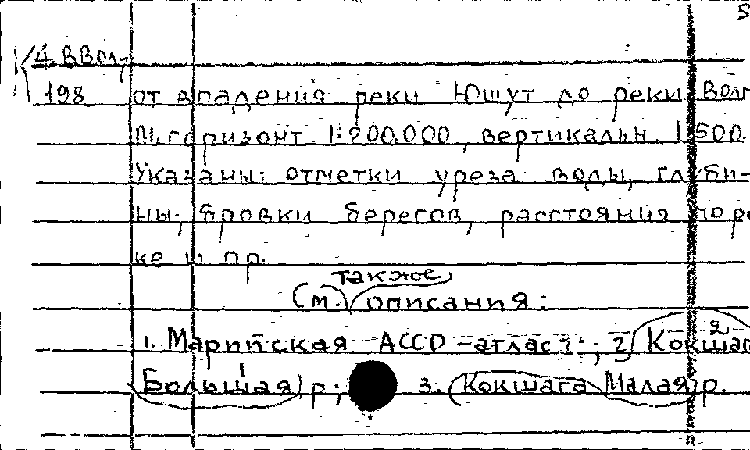 5
4 ВВол
198 от впадения реки Юшут до реки Волг
М. горизонт. 1:200.000, вертикальн. 1:500.
Указаны: отметки уреза воды, глуби-
ны, бровки берегов, расстояния по ре
ке и пр.
также
(см. описания:
1. Марийская АССР – атлас; 2) Кокшаг
Большая р; 3. Кокшага Малая р.